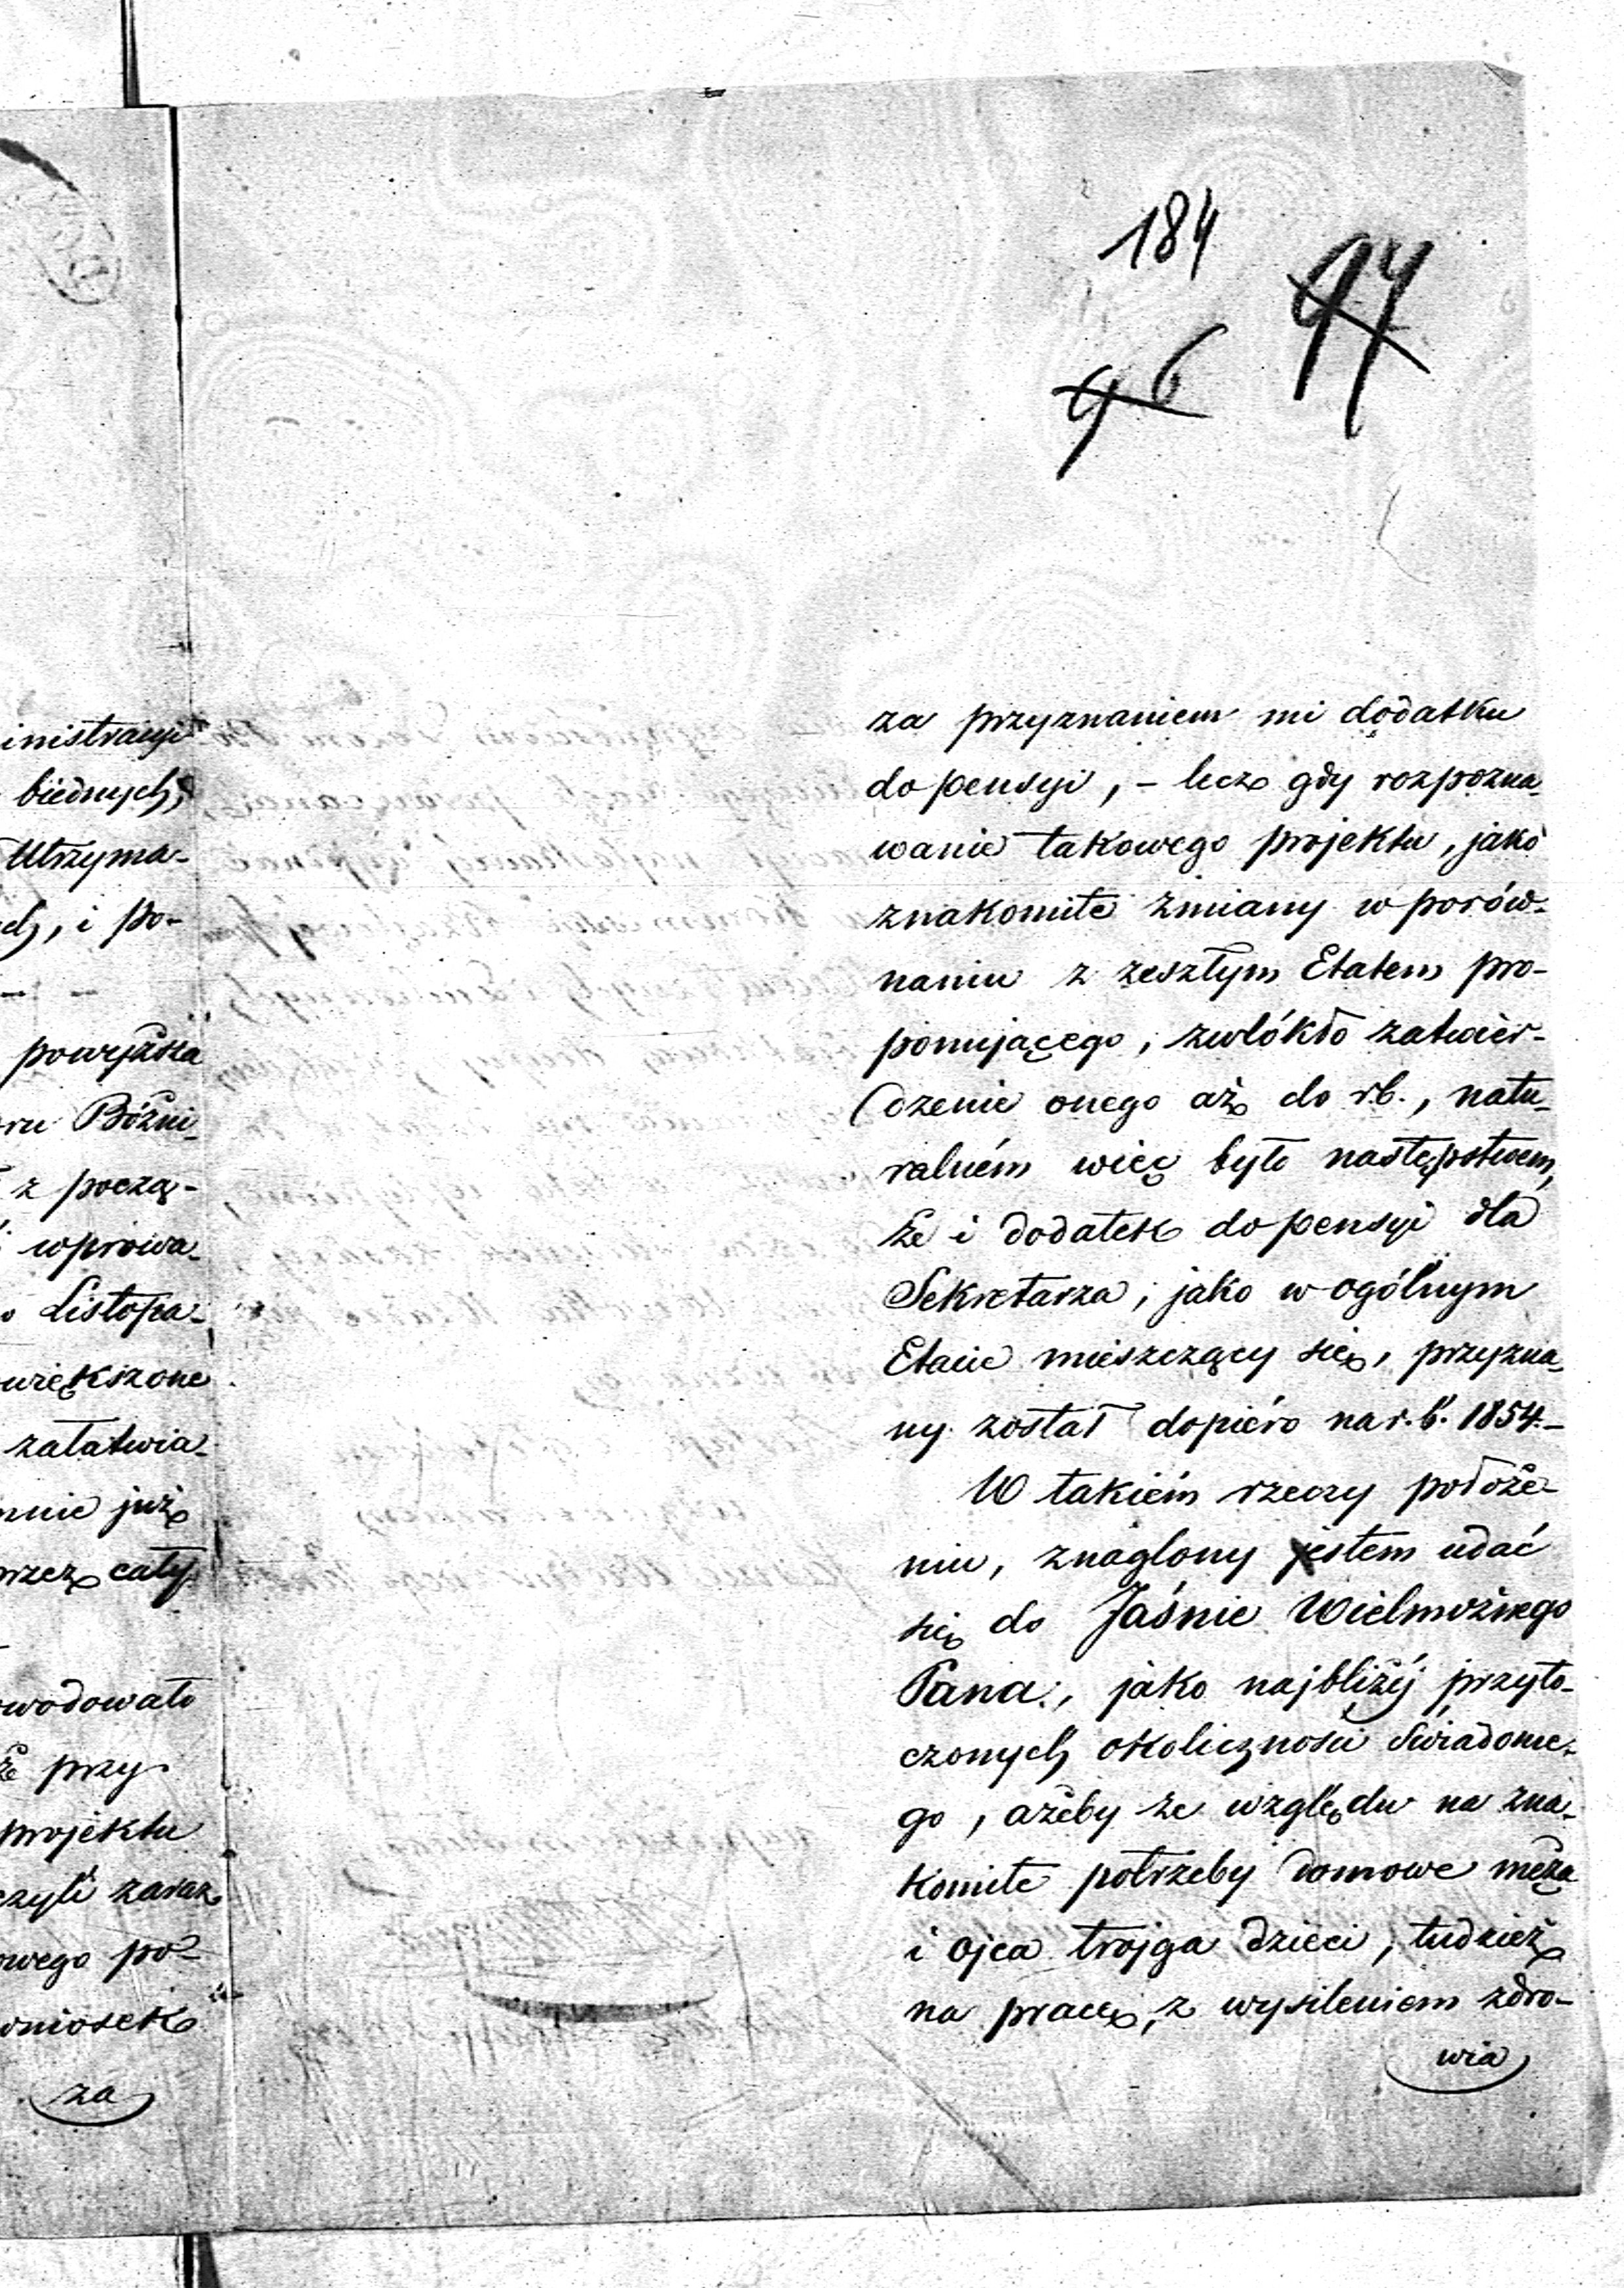 inistracyi
biednych,
Utrzyma-
ch, i po-
powyższa
ru Bóźni-
z począ-
wprowa-
Listopa-
większone
załatwia-
mnie już
przez cały
wodowało
że przy
projektu
czyli zaraz
owego po-
wniosek
za
184
97
96
za przyznaniem mi dodatku
do pensyi, - lecz gdy rozpozna-
wanie takowego projektu, jako
znakomite zmiany w porów-
naniu z zeszłym Etatem pro-
ponującego, zwlókło zatwier-
dzenie onego aż do rb., natu-
ralném więc było następstwem,
że i dodatek do pensyi dla
Sekretarza, jako w ogólnym
Etacie mieszczący się, przyzna-
ny został dopiéro na r. b. 1854.-
W takiém rzeczy położe-
niu, znaglony jestem udać
się do Jaśnie Wielmożnego
Pana, jako najbliżéj przyto-
czonych okoliczności świadome-
go, ażeby ze względu na zna-
komite potrzeby domowe męża
i ojca trojga dzieci, tudzież
na pracę, z wysileniem zdro-
wia